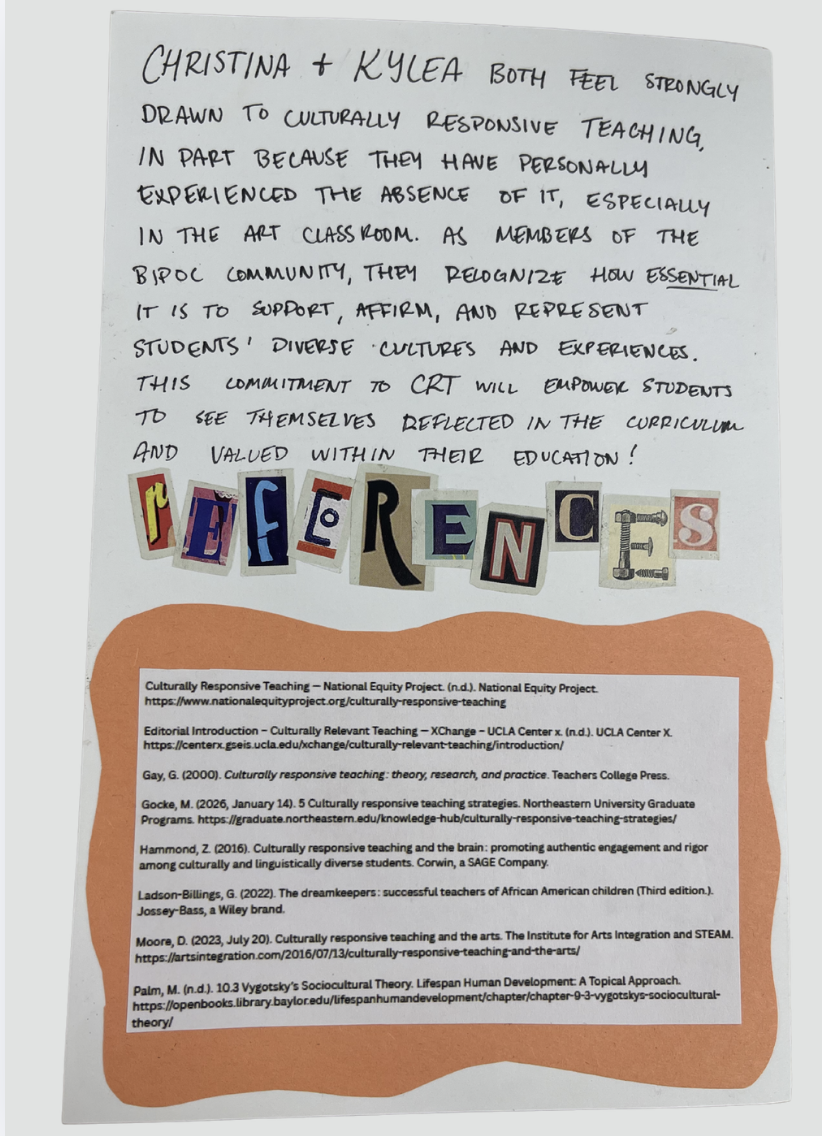 CHRISTINA + KYLEA BOTH FEEL STRONGLY
DRAWN TO CULTURALLY RESPONSIVE TEACHING,
IN PART BECAUSE THEY HAVE PERSONALLY
EXPERIENCED THE ABSENCE OF IT, ESPECIALLY
IN THE ART CLASSROOM. AS MEMBERS OF THE
BIPOC COMMUNITY, THEY RECOGNIZE HOW ESSENTIAL
IT IS TO SUPPORT, AFFIRM, AND REPRESENT
STUDENTS' DIVERSE CULTURES AND EXPERIENCES.
THIS COMMITMENT TO CRT WILL EMPOWER STUDENTS
TO SEE THEMSELVES REFLECTED IN THE CURRICULUM
AND VALUED WITHIN THEIR EDUCATION!
rEfERENCES
Culturally Responsive Teaching — National Equity Project. (n.d.). National Equity Project.
https://www.nationalequityproject.org/culturally-responsive-teaching
Editorial Introduction – Culturally Relevant Teaching — XChange – UCLA Center x. (n.d.). UCLA Center X.
https://centerx.gseis.ucla.edu/xchange/culturally-relevant-teaching/introduction/
Gay, G. (2000). Culturally responsive teaching: theory, research, and practice. Teachers College Press.
Gocke, M. (2026, January 14). 5 Culturally responsive teaching strategies. Northeastern University Graduate
Programs. https://graduate.northeastern.edu/knowledge-hub/culturally-responsive-teaching-strategies/
Hammond, Z. (2016). Culturally responsive teaching and the brain: promoting authentic engagement and rigor
among culturally and linguistically diverse students. Corwin, a SAGE Company.
Ladson-Billings, G. (2022). The dreamkeepers: successful teachers of African American children (Third edition.).
Jossey-Bass, a Wiley brand.
Moore, D. (2023, July 20). Culturally responsive teaching and the arts. The Institute for Arts Integration and STEAM.
https://artsintegration.com/2016/07/13/culturally-responsive-teaching-and-the-arts/
Palm, M. (n.d.). 10.3 Vygotsky's Sociocultural Theory. Lifespan Human Development: A Topical Approach.
https://openbooks.library.baylor.edu/lifespanhumandevelopment/chapter/chapter-9-3-vygotskys-sociocultural-
theory/